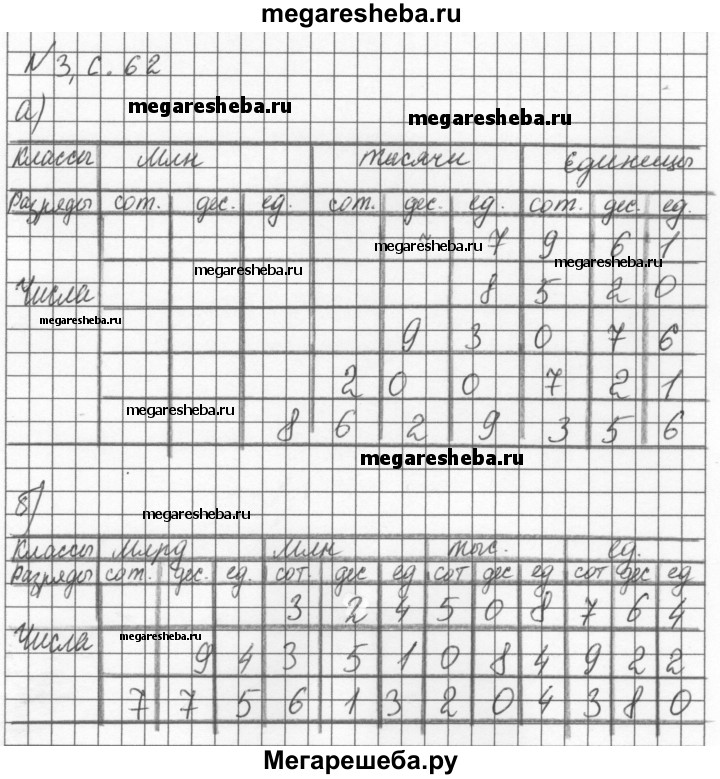 megaresheba.ru
№ 3, с. 62
а)
megaresheba.ru
megaresheba.ru
Классы Млн Тысячи Единицы
Разряды сот. дес. ед. сот. дес. ед. сот. дес. ед.
7 9 6 1
megaresheba.ru
megaresheba.ru
megaresheba.ru
Числа 8 5 2 0
megaresheba.ru
9 3 0 7 6
2 0 0 7 2 1
megaresheba.ru
8 6 2 9 3 5 6
megaresheba.ru
б)
megaresheba.ru
Классы Млрд Млн тыс. ед.
Разряды сот. дес. ед. сот. дес ед сот дес ед сот дес ед
3 2 4 5 0 8 7 6 4
megaresheba.ru
Числа 9 4 3 5 1 0 8 4 9 2 2
7 7 5 6 1 3 2 0 4 3 8 0
Мегарешеба.ру